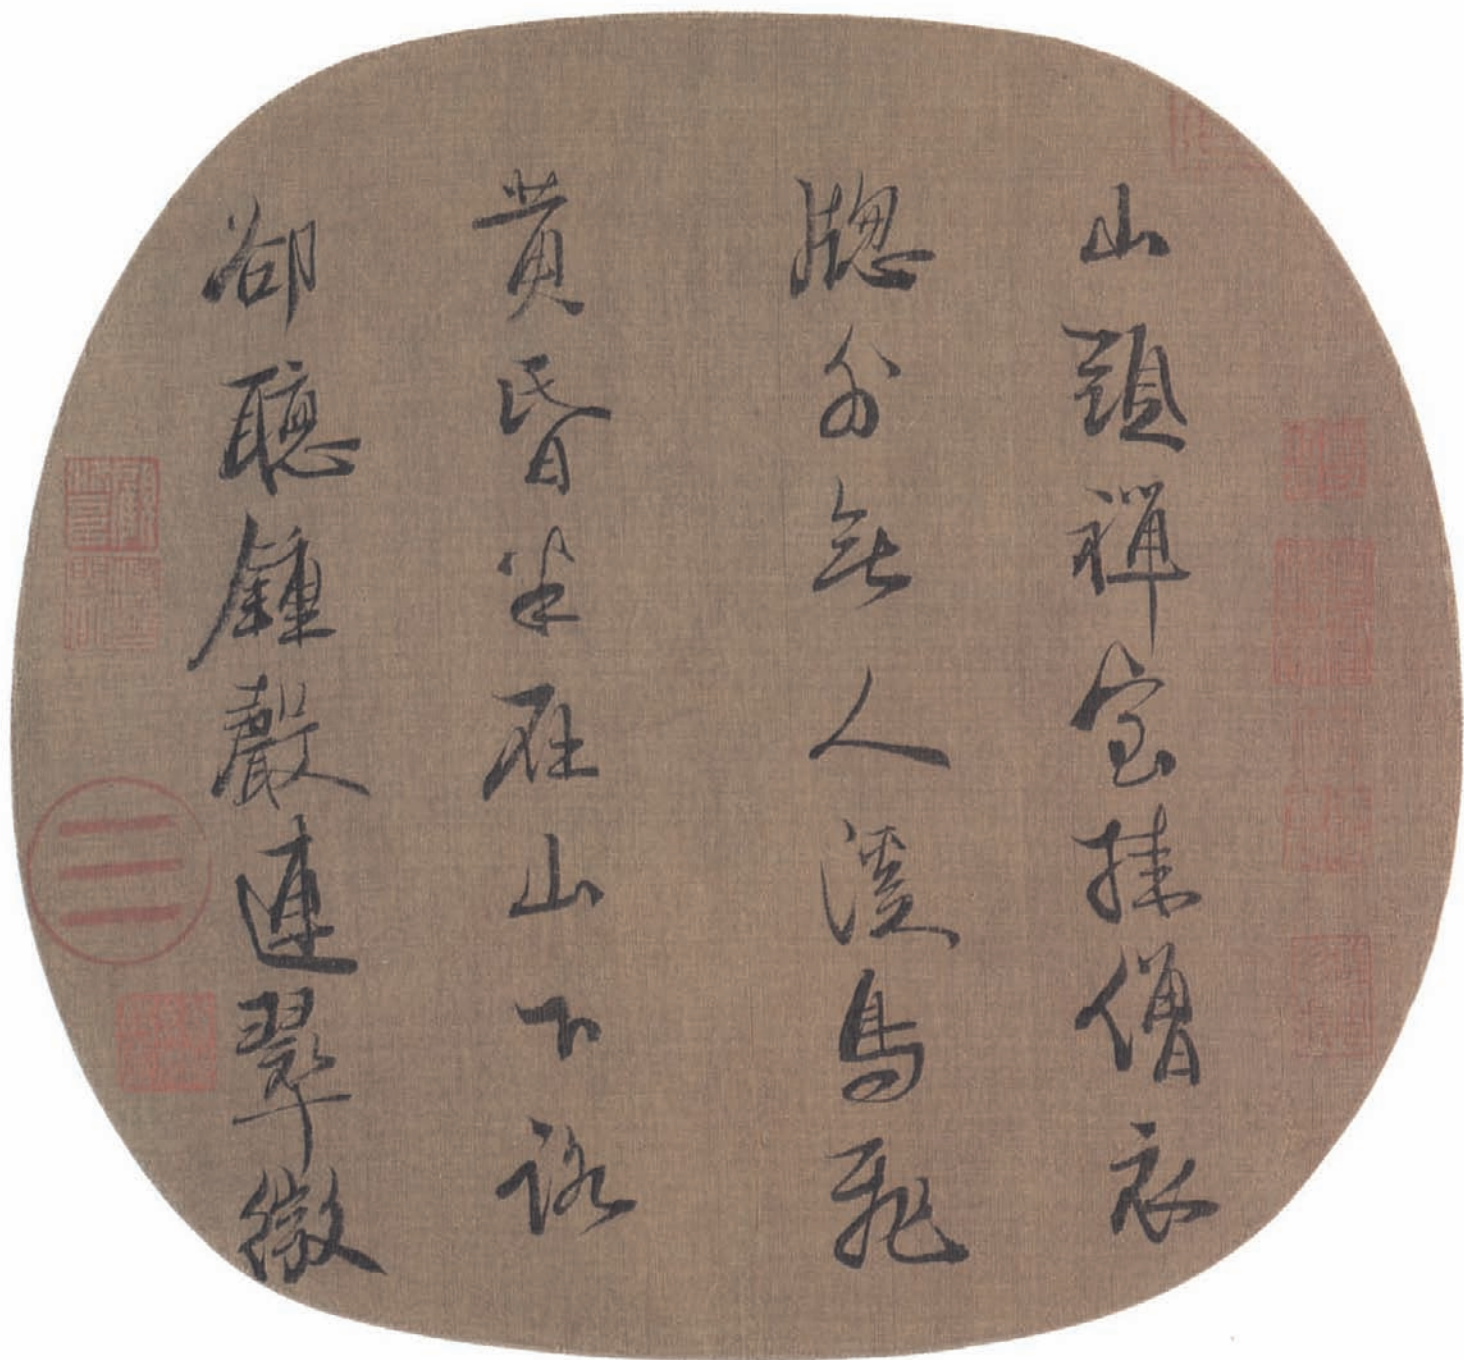 山頭禪室挂僧衣
牕外無人溪鳥飛
黃昏半在山下路
卻聽鍾聲連翠微